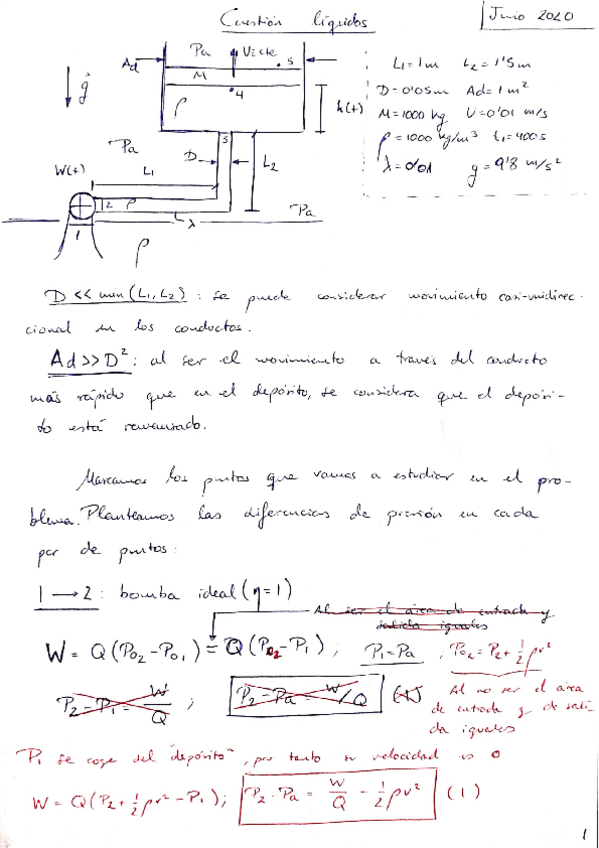 Cuestión líquidos
Junio 2020
Pa
V=cte
Ad
5
M
4
g
ρ
h(t)
Pa
3
D
L2
W(t)
L1
2
ρ
λ
Pa
1
ρ
L1=1m L2=1'5m
D=0'05m Ad=1m²
M=1000 kg V=0'01 m/s
ρ=1000 kg/m³ t1=400s
λ=0'01 g=9'8 m/s²
D << min(L1, L2): se puede considerar movimiento casi-unidirec-
cional en los conductos.
Ad>>D²: al ser el movimiento a través del conducto
más rápido que en el depósito, se considera que el depósi-
to está remansado.
Marcamos los puntos que vamos a estudiar en el pro-
blema. Planteamos las diferencias de presión en cada
par de puntos:
1 → 2: bomba ideal (η=1)
Al ser el área de entrada y
salida iguales
W = Q(P02-P01) = Q(P02-P1); P1=Pa ; P02=P2+½ρv²
P2-P1=W/Q ; P2-Pa=W/Q (1)
Al no ser el área
de entrada y de sali-
da iguales
P1 se coge del "depósito", por tanto su velocidad es 0
W = Q(P2+½ρv²-P1); P2-Pa = W/Q - ½ρv² (1)
1